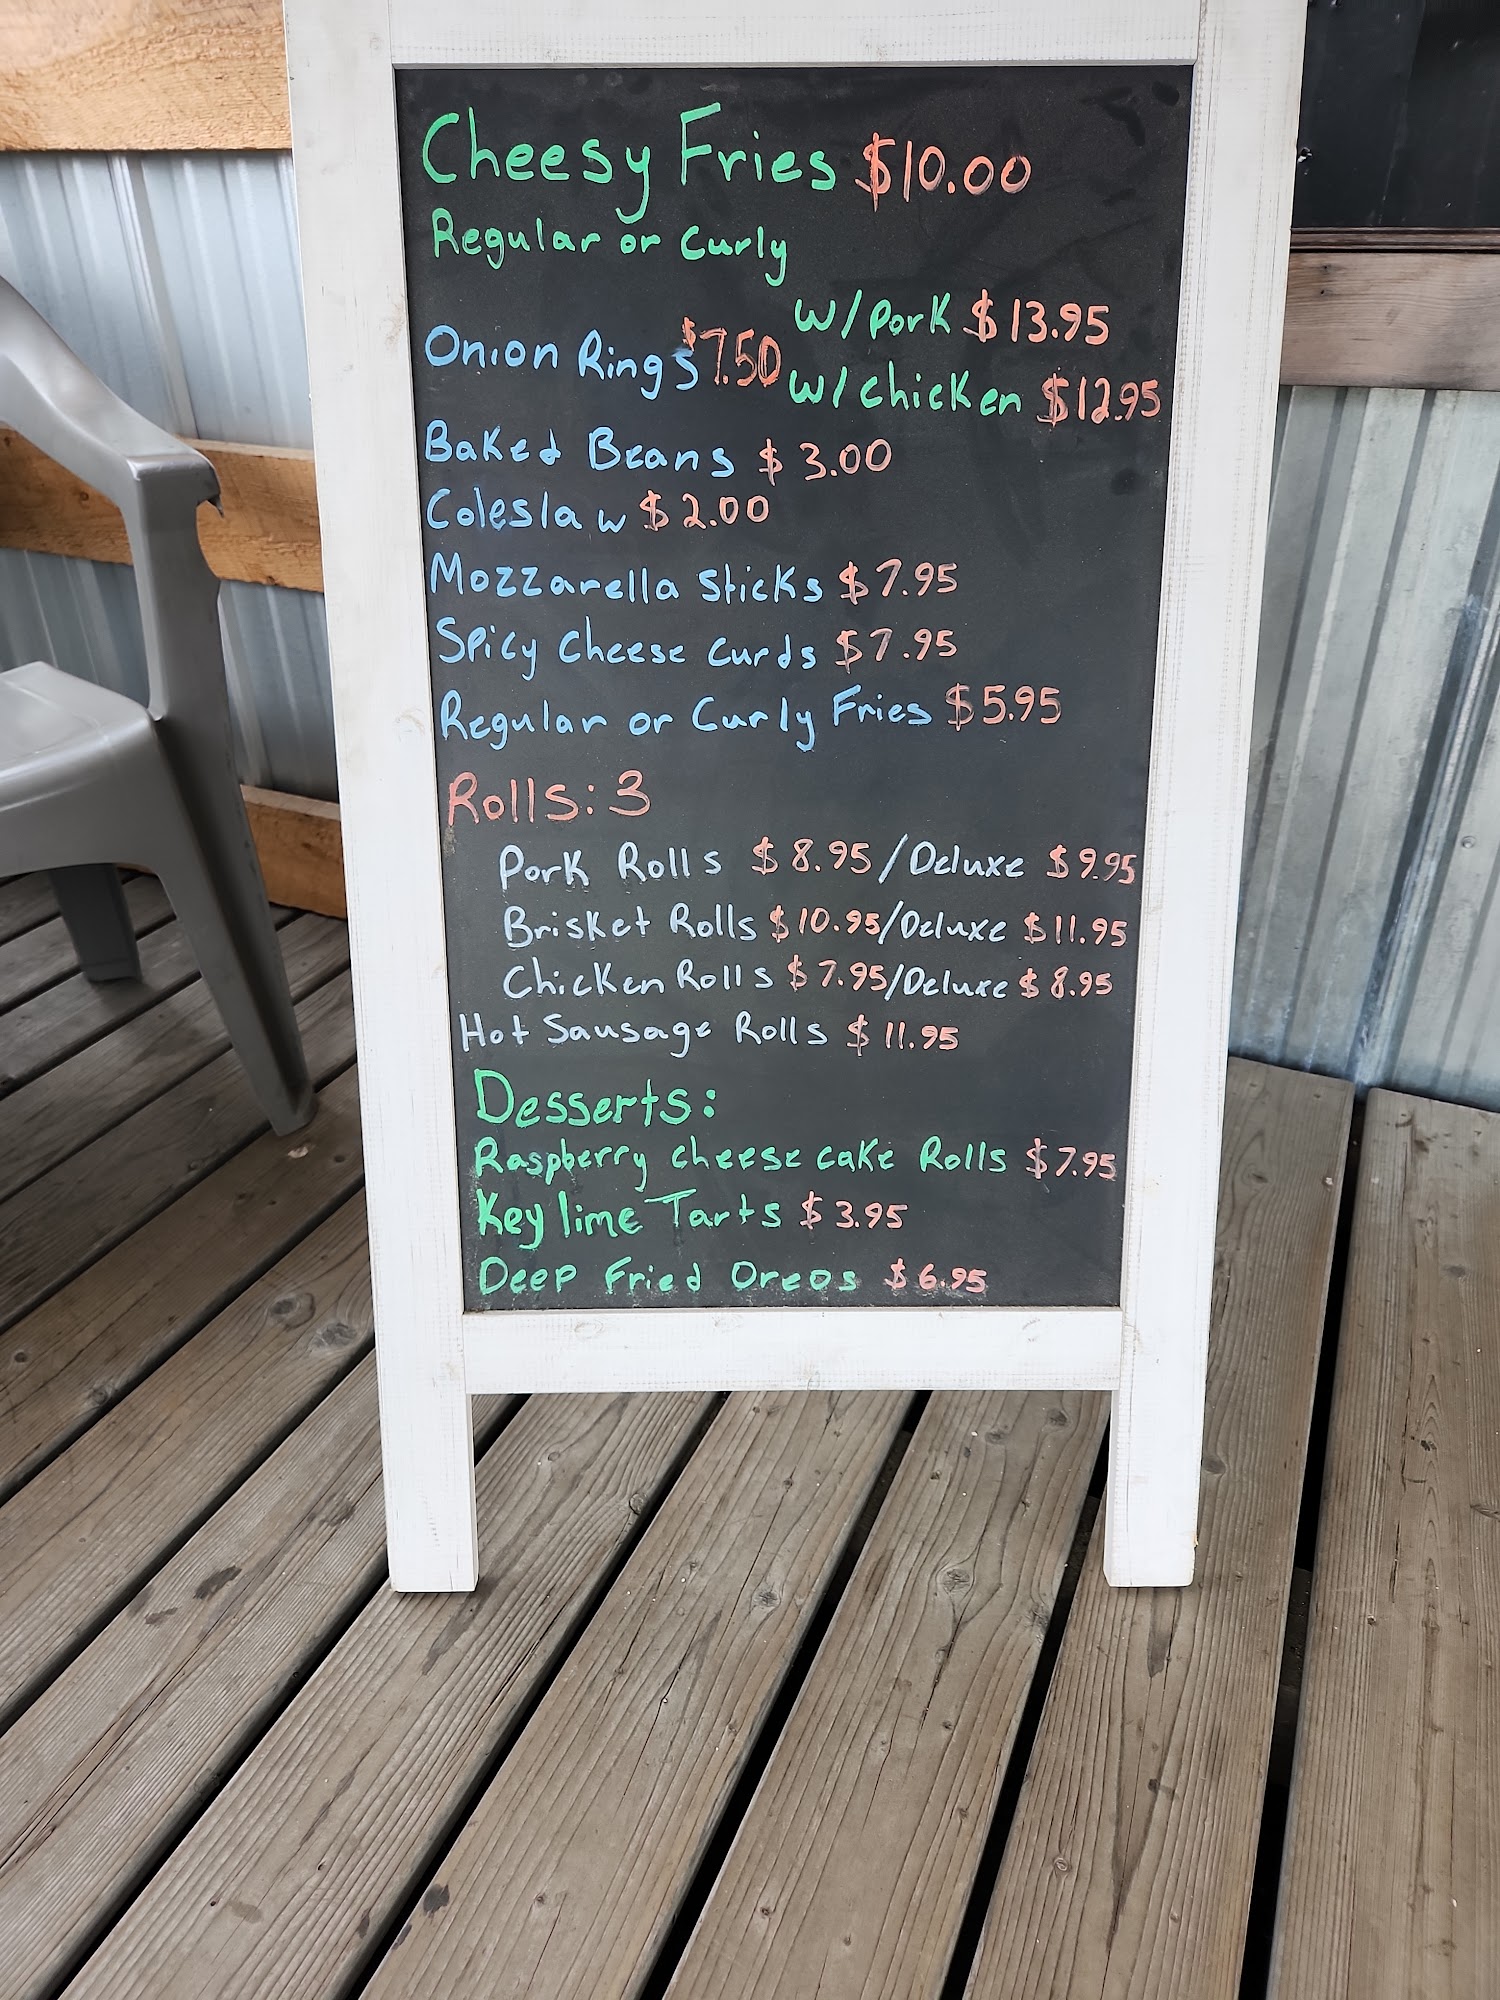 Cheesy Fries $10.00
Regular or Curly
w/Pork $13.95
Onion Rings $7.50
w/chicken $12.95
Baked Beans $3.00
Coleslaw $2.00
Mozzarella Sticks $7.95
Spicy Cheese Curds $7.95
Regular or Curly Fries $5.95
Rolls: 3
Pork Rolls $8.95/Deluxe $9.95
Brisket Rolls $10.95/Deluxe $11.95
Chicken Rolls $7.95/Deluxe $8.95
Hot Sausage Rolls $11.95
Desserts:
Raspberry cheese cake Rolls $7.95
Key lime Tarts $3.95
Deep Fried Oreos $6.95